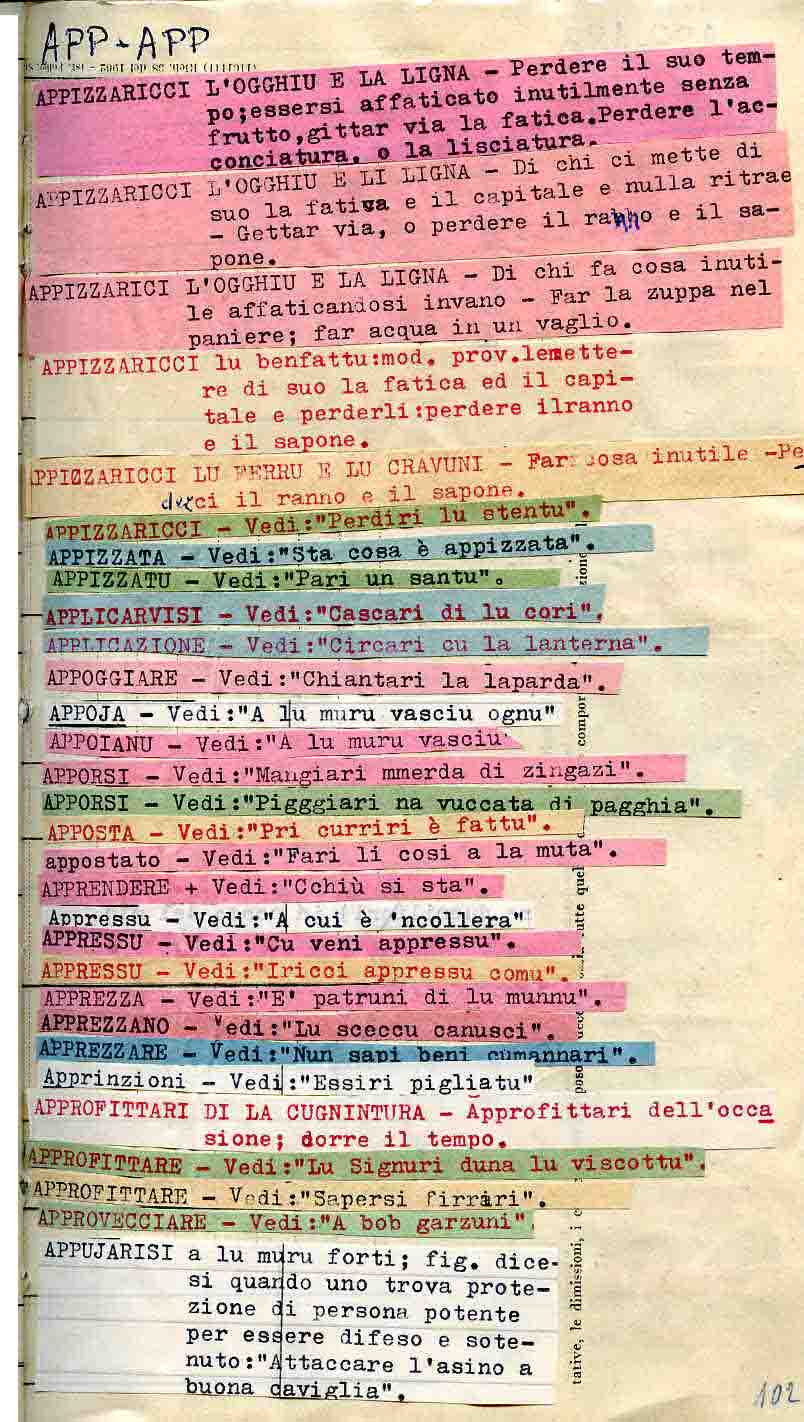 APP-APP
APPIZZARICCI L'OGGHIU E LA LIGNA - Perdere il suo tem-
po;essersi affaticato inutilmente senza
frutto,gittar via la fatica.Perdere l'ac-
conciatura. o la lisciatura.
APPIZZARICCI L'OGGHIU E LI LIGNA - Di chi ci mette di
suo la fativa e il capitale e nulla ritrae
- Gettar via, o perdere il ranno e il sa-
pone.
APPIZZARICI L'OGGHIU E LA LIGNA - Di chi fa cosa inuti-
le affaticandosi invano - Far la zuppa nel
paniere; far acqua in un vaglio.
APPIZZARICCI lu benfattu:mod. prov.lemette-
re di suo la fatica ed il capi-
tale e perderli:perdere ilranno
e il sapone.
PPIZZARICCI LU FERRU E LU CRAVUNI - Far cosa inutile -Pe
derci il ranno e il sapone.
APPIZZARICCI - Vedi:"Perdiri lu stentu".
APPIZZATA - Vedi:"Sta cosa è appizzata".
APPIZZATU - Vedi:"Pari un santu".
zione
APPLICARVISI - Vedi:"Cascari di lu cori".
APPLICAZIONE - Vedi:"Circari cu la lanterna".
APPOGGIARE - Vedi:"Chiantari la laparda".
APPOJA - Vedi:"A lu muru vasciu ognu"
compor
APPOIANU - Vedi:"A lu muru vasciu
APPORSI - Vedi:"Mangiari mmerda di zingazi".
APPORSI - Vedi:"Pigggiari na vuccata di pagghia".
APPOSTA - Vedi:"Pri curriri è fattu".
appostato - Vedi:"Fari li cosi a la muta".
APPRENDERE + Vedi:"Cchiù si sta".
utte quel
Appressu - Vedi:"A cui è 'ncollera"
APPRESSU - Vedi:"Cu veni appressu".
APPRESSU - Vedi:"Iricci appressu comu".
APPREZZA - Vedi:"E' patruni di lu munnu".
APPREZZANO - Vedi:"Lu sceccu canusci".
APPREZZARE - Vedi:"Nun sapi beni cumannari".
Apprinzioni - Vedi:"Essiri pigliatu"
APPROFITTARI DI LA CUGNINTURA - Approfittari dell'occa
sione; dorre il tempo.
APPROFITTARE - Vedi:"Lu Signuri duna lu viscottu".
APPROFITTARE - Vedi:"Sapersi firrari".
APPROVECCIARE - Vedi:"A bob garzuni".
tative, le dimissioni, i c
APPUJARISI a lu muru forti; fig. dice-
si quando uno trova prote-
zione di persona potente
per essere difeso e sote-
nuto:"Attaccare l'asino a
buona caviglia".
102